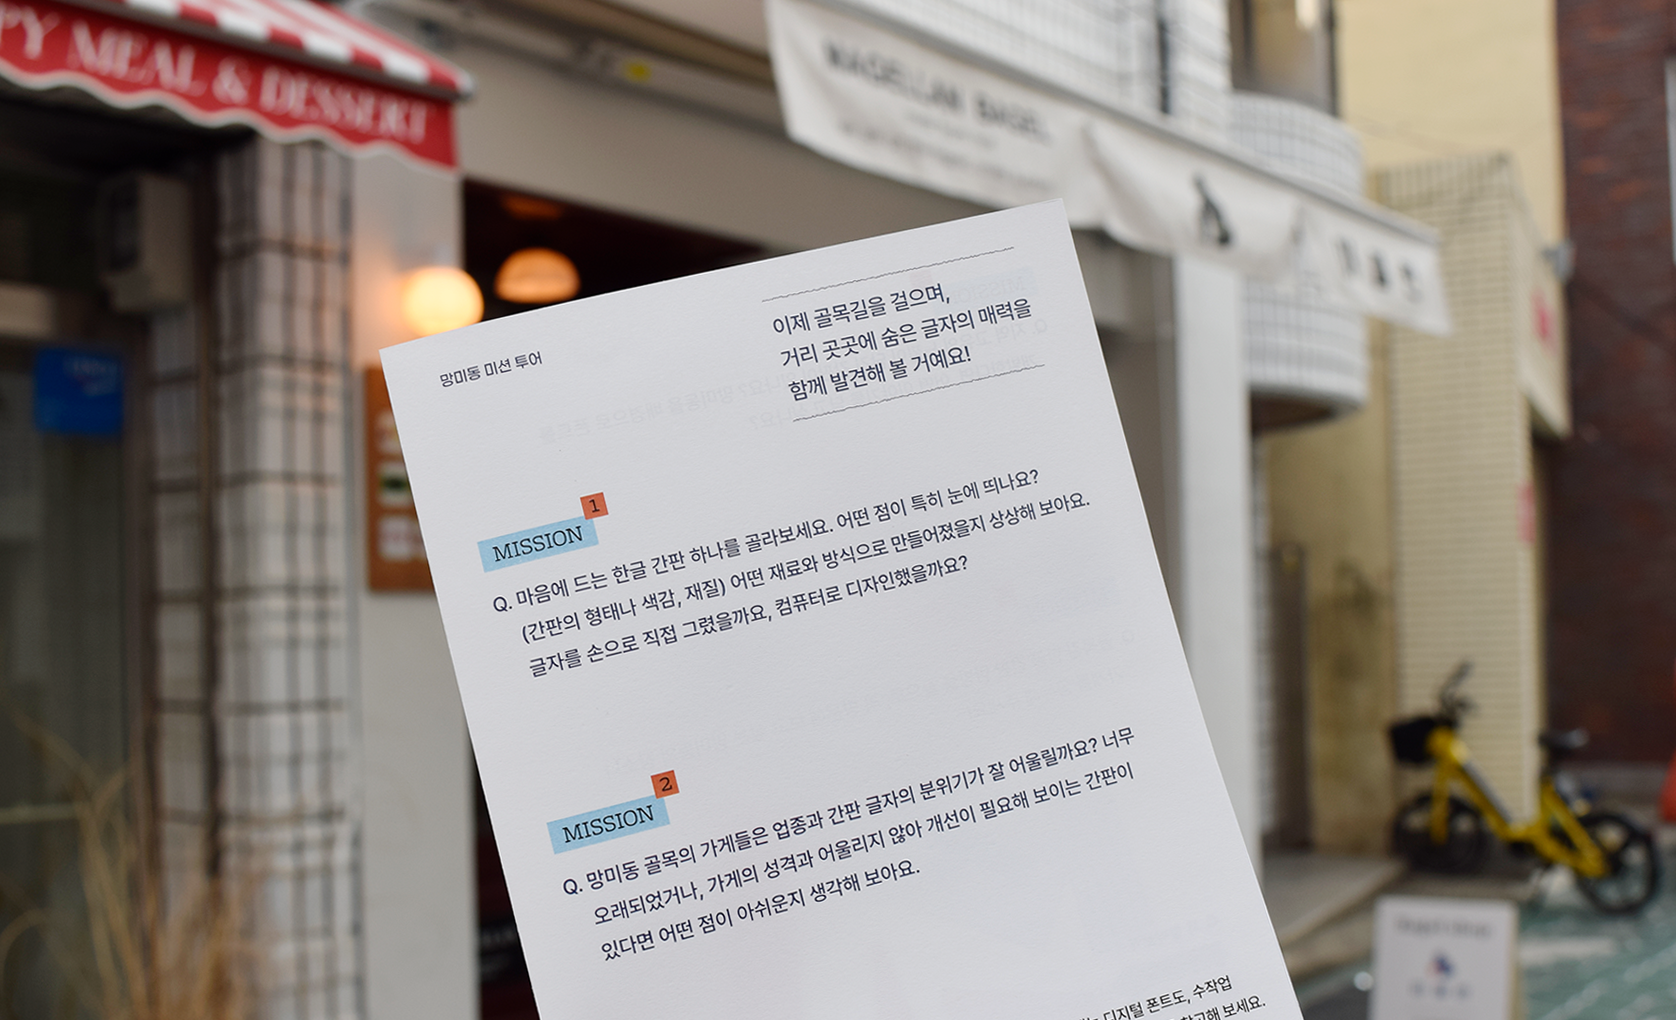 MEAL & DESSERT
MAGELLAN BAGEL
망미동 미션 투어
이제 골목길을 걸으며,
거리 곳곳에 숨은 글자의 매력을
함께 발견해 볼 거예요!
1
MISSION
Q. 마음에 드는 한글 간판 하나를 골라보세요. 어떤 점이 특히 눈에 띄나요?
(간판의 형태나 색감, 재질) 어떤 재료와 방식으로 만들어졌을지 상상해 보아요.
글자를 손으로 직접 그렸을까요, 컴퓨터로 디자인했을까요?
2
MISSION
Q. 망미동 골목의 가게들은 업종과 간판 글자의 분위기가 잘 어울릴까요? 너무
오래되었거나, 가게의 성격과 어울리지 않아 개선이 필요해 보이는 간판이
있다면 어떤 점이 아쉬운지 생각해 보아요.
디지털 폰트도, 수작업
참고해 보세요.